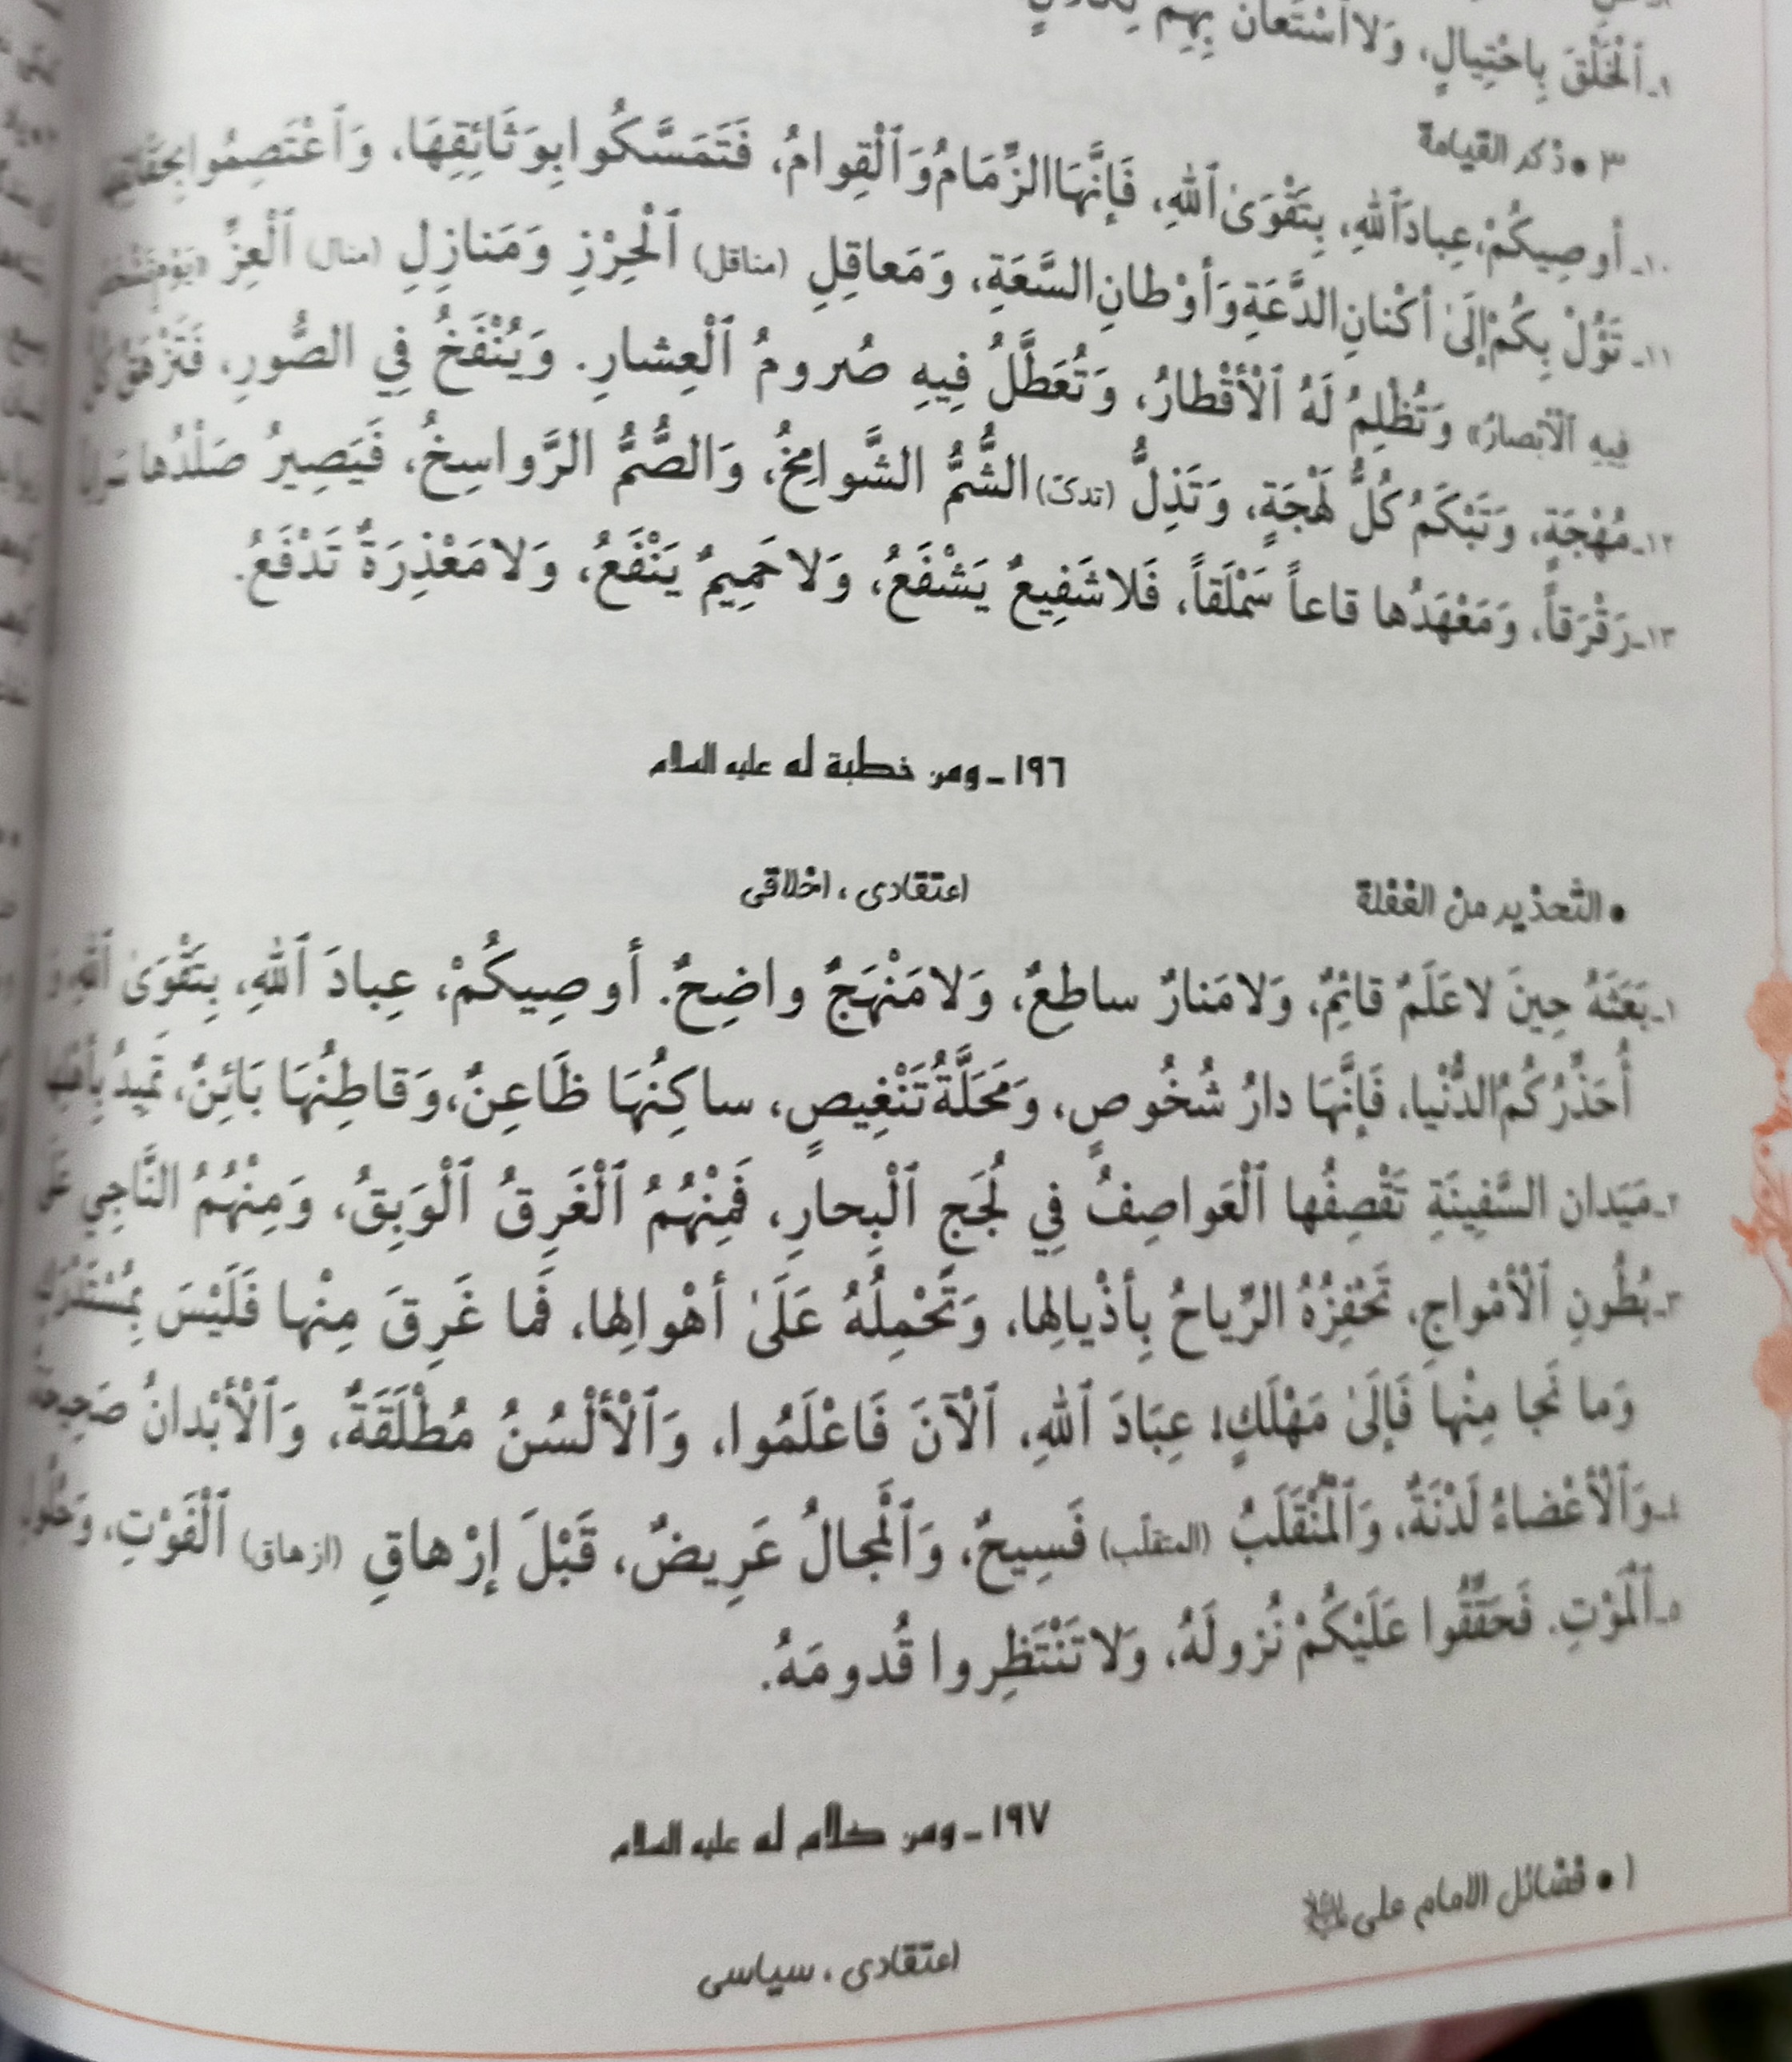 ٱلْخَلْقَ بِاحْتِيالٍ، وَلا ٱسْتَعانَ بِهِمْ
٣ • ذكر القيامة
١٠ـ أُوصِيكُمْ، عِبادَ ٱللهِ، بِتَقْوَىٰ ٱللهِ، فَإِنَّهَا الزِّمَامُ وَٱلْقِوامُ، فَتَمَسَّكُوا بِوَثَائِقِهَا، وَٱعْتَصِمُوا بِحَقَائِقِهَا
١١ـ تَؤُلْ بِكُمْ إِلَىٰ أَكْنانِ الدَّعَةِ وَأَوْطانِ السَّعَةِ، وَمَعاقِلِ (مناقل) ٱلْحِرْزِ وَمَنازِلِ (منال) ٱلْعِزِّ «يَوْمٍ تَشْخَصُ
فِيهِ ٱلْأَبْصارُ» وَتُظْلِمُ لَهُ ٱلْأَقْطارُ، وَتُعَطَّلُ فِيهِ صُرومُ ٱلْعِشارِ. وَيُنْفَخُ فِي الصُّورِ، فَتَزْهَقُ كُلُّ
١٢ـ مُهْجَةٍ، وَتَبْكَمُ كُلُّ لَهْجَةٍ، وَتَذِلُّ (تدكّ) الشُّمُّ الشَّوامِخُ، وَالصُّمُّ الرَّواسِخُ، فَيَصِيرُ صَلْدُها سَراباً
١٣ـ رَقْرَقاً، وَمَعْهَدُها قاعاً سَمْلَقاً، فَلا شَفِيعٌ يَشْفَعُ، وَلا حَمِيمٌ يَنْفَعُ، وَلا مَعْذِرَةٌ تَدْفَعُ.
١٩٦ ـ ومن خطبة له عليه السلام
اعتقادى ، اخلاقى
• التّحذير من الغفلة
١ـ بَعَثَهُ حِينَ لا عَلَمٌ قائِمٌ، وَلا مَنارٌ ساطِعٌ، وَلا مَنْهَجٌ واضِحٌ. أُوصِيكُمْ، عِبادَ ٱللهِ، بِتَقْوَىٰ ٱللهِ، وَ
أُحَذِّرُكُمُ الدُّنْيا، فَإِنَّهَا دارُ شُخُوصٍ، وَمَحَلَّةُ تَنْغِيصٍ، ساكِنُهَا ظَاعِنٌ، وَقاطِنُهَا بَائِنٌ، تَمِيدُ بِأَهْلِها
٢ـ مَيَدانَ السَّفِينَةِ تَقْصِفُها ٱلْعَواصِفُ فِي لُجَجِ ٱلْبِحارِ، فَمِنْهُمُ ٱلْغَرِقُ ٱلْوَبِقُ، وَمِنْهُمُ النَّاجِي عَلَىٰ
٣ـ بُطُونِ ٱلْأَمْواجِ، تَحْفِزُهُ الرِّياحُ بِأَذْيالِها، وَتَحْمِلُهُ عَلَىٰ أَهْوالِها، فَما غَرِقَ مِنْها فَلَيْسَ بِمُسْتَدْرَكٍ
وَما نَجا مِنْها فَإِلَىٰ مَهْلَكٍ! عِبَادَ ٱللهِ، ٱلْآنَ فَاعْلَمُوا، وَٱلْأَلْسُنُ مُطْلَقَةٌ، وَٱلْأَبْدانُ صَحِيحَةٌ
٤ـ وَٱلْأَعْضاءُ لَدْنَةٌ، وَٱلْمُنْقَلَبُ (المتقلّب) فَسِيحٌ، وَٱلْمَجالُ عَرِيضٌ، قَبْلَ إِرْهاقِ (ازهاق) ٱلْفَوْتِ، وَحُلُولِ
٥ـ ٱلْمَوْتِ. فَحَقِّقُوا عَلَيْكُمْ نُزولَهُ، وَلا تَنْتَظِروا قُدومَهُ.
١٩٧ ـ ومن كلام له عليه السلام
١ • فضائل الامام علىّ
اعتقادى ، سياسى